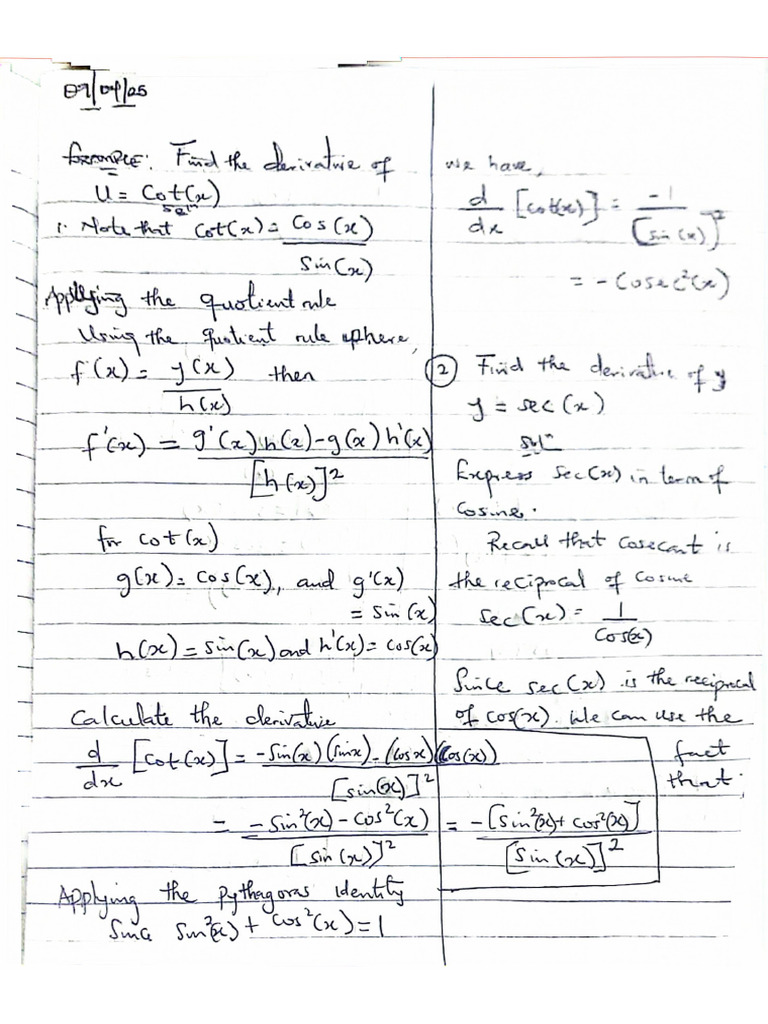 09/04/25
Example: Find the derivative of
U = Cot(x)
soln
1. Note that cot(x) = Cos(x)
Sin(x)
Applying the quotient rule
Using the quotient rule where,
f(x) = g(x) then
h(x)
f'(x) = g'(x)h(x)-g(x)h'(x)
[h(x)]2
for cot(x)
g(x) = cos(x), and g'(x)
= sin(x)
h(x) = sin(x) and h'(x) = cos(x)
Calculate the derivative
d [cot(x)] = -sin(x)(sinx) - (cosx)(cos(x))
dx [sin(x)]2
= -sin2(x) - cos2(x) = -[sin2(x) + cos2(x)]
[sin(x)]2 [sin(x)]2
Applying the pythagoras identity
sin2(x) + cos2(x) = 1
we have,
d [cot(x)] = -1
dx [sin(x)]2
= -Cosec2(x)
2 Find the derivative of y
y = sec(x)
soln
Express sec(x) in term of
Cosine.
Recall that cosecant is
the reciprocal of cosine
sec(x) = 1
Cos(x)
Since sec(x) is the reciprocal
of cos(x). We can use the
fact
that;